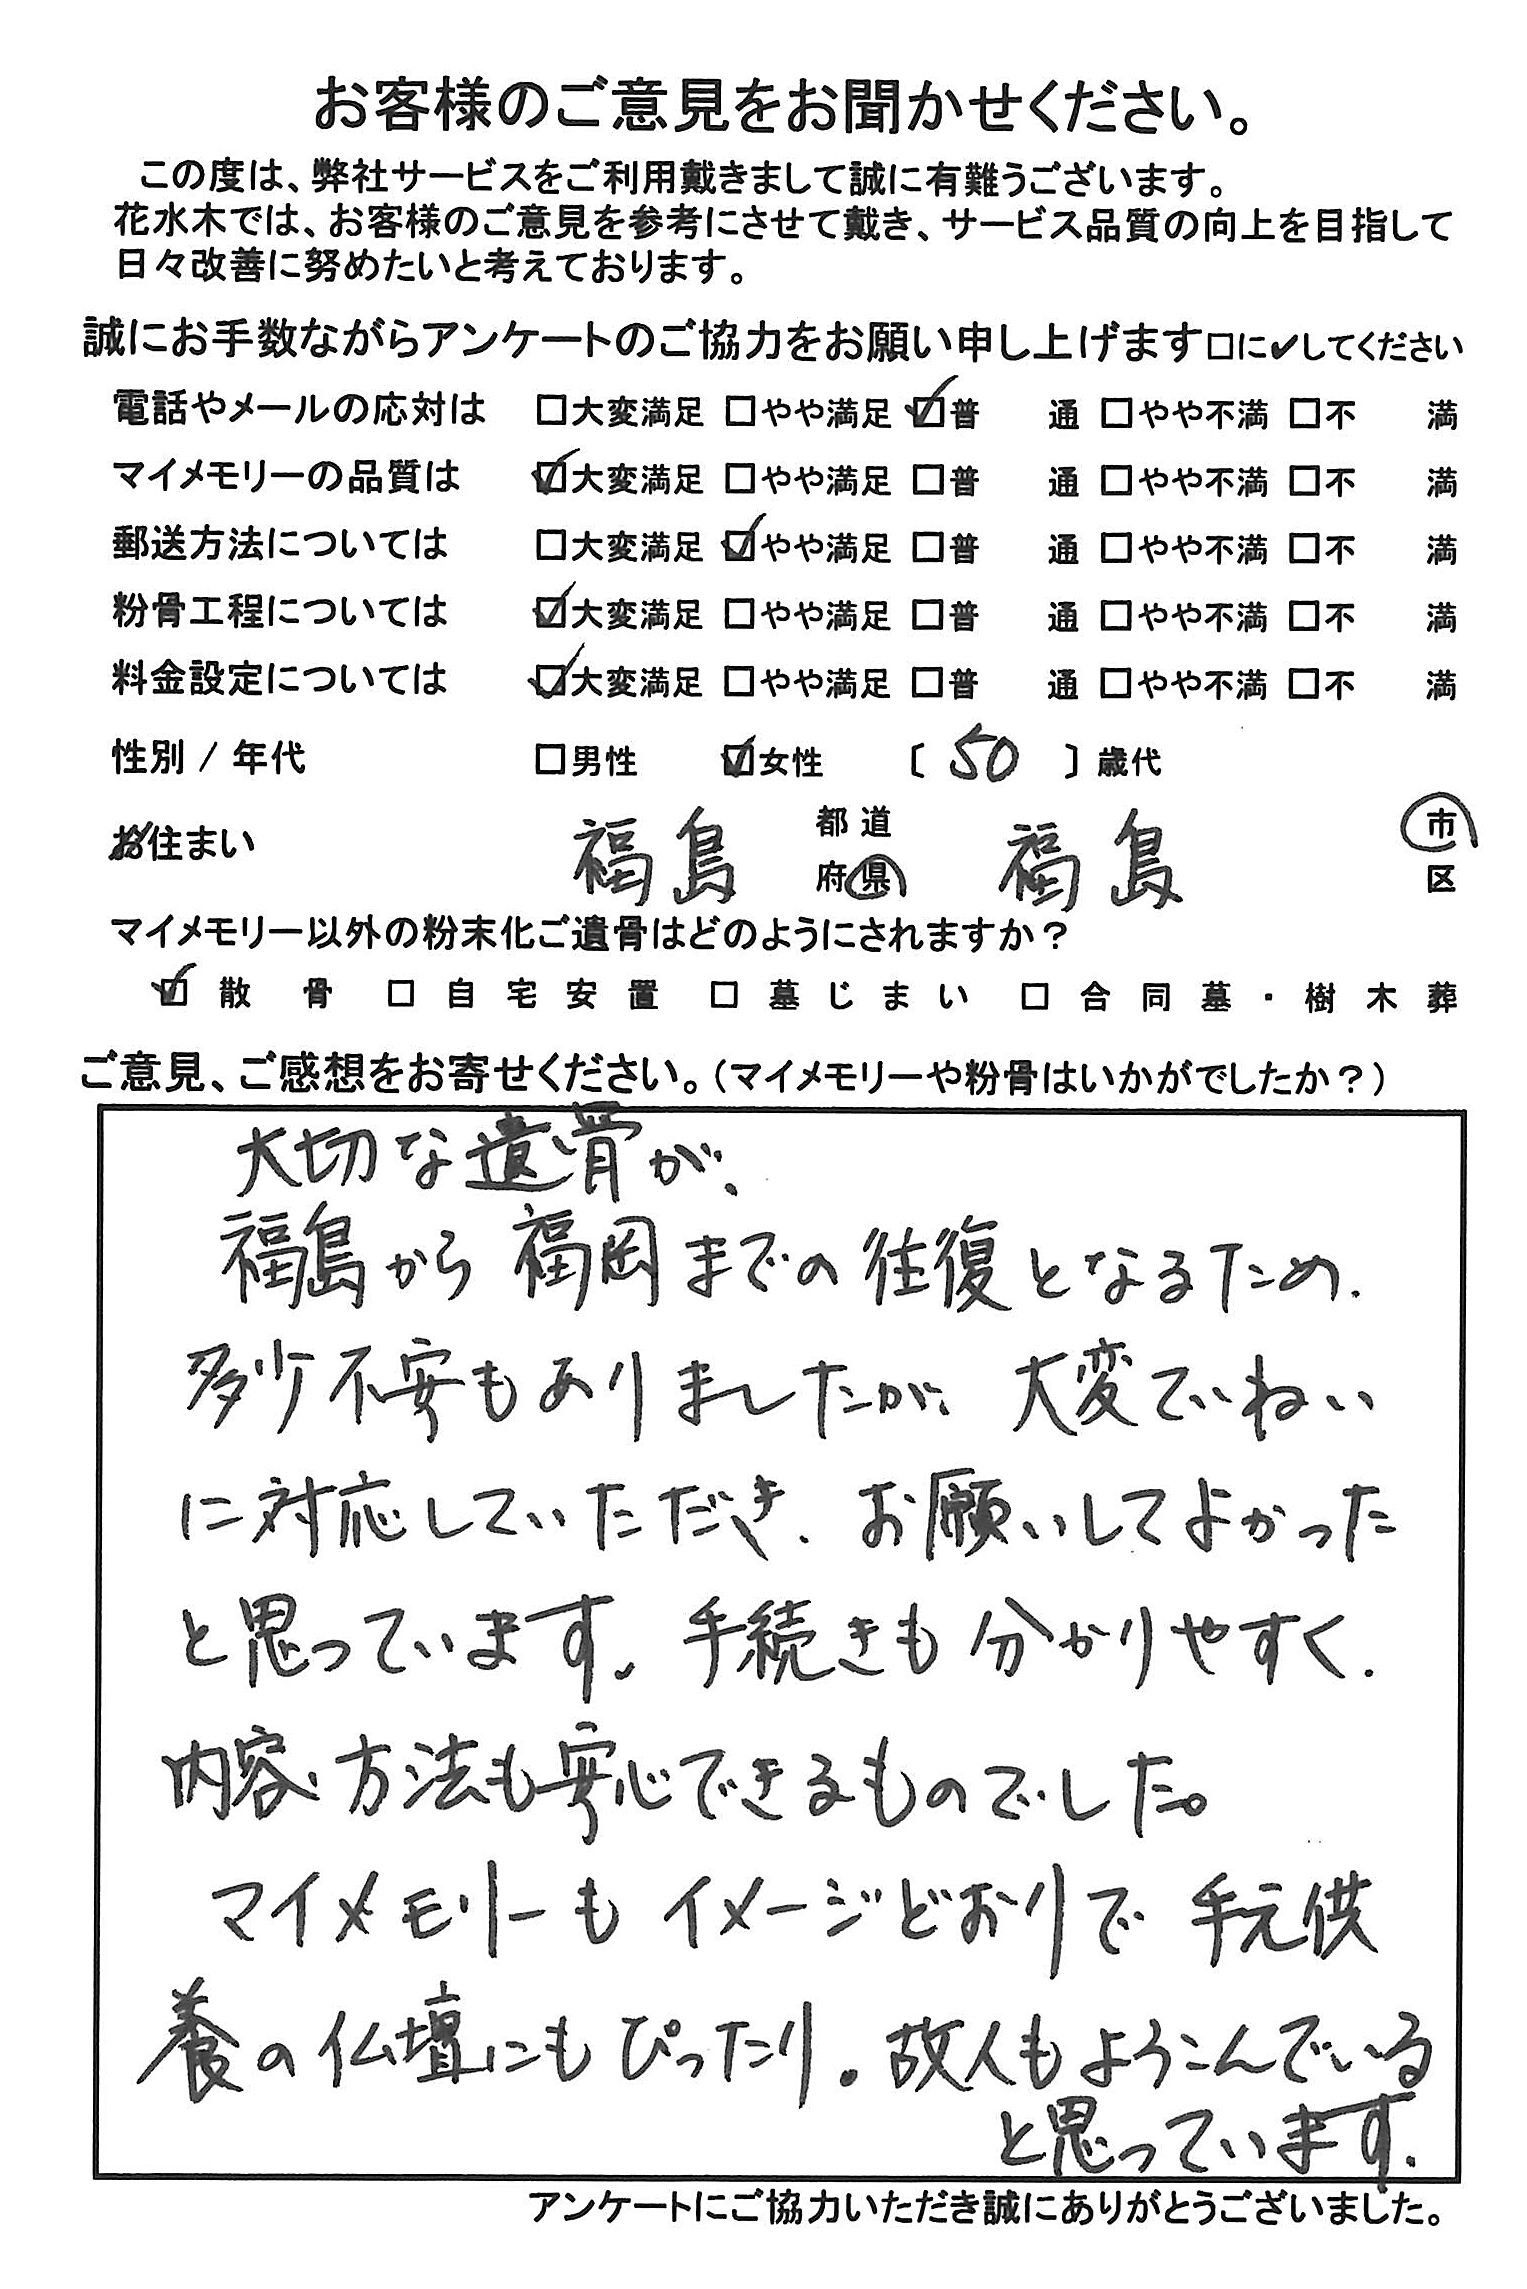 お客様のご意見をお聞かせください。
この度は、弊社サービスをご利用戴きまして誠に有難うございます。
花水木では、お客様のご意見を参考にさせて戴き、サービス品質の向上を目指して
日々改善に努めたいと考えております。
誠にお手数ながらアンケートのご協力をお願い申し上げます□に✓してください
電話やメールの応対は □大変満足 □やや満足 ☑普 通 □やや不満 □不 満
マイメモリーの品質は ☑大変満足 □やや満足 □普 通 □やや不満 □不 満
郵送方法については □大変満足 ☑やや満足 □普 通 □やや不満 □不 満
粉骨工程については ☑大変満足 □やや満足 □普 通 □やや不満 □不 満
料金設定については ☑大変満足 □やや満足 □普 通 □やや不満 □不 満
性別 / 年代 □男性 ☑女性 〔 50 〕歳代
お住まい 福島 都道府県 福島 市区
マイメモリー以外の粉末化ご遺骨はどのようにされますか?
☑ 散骨 □ 自宅安置 □ 墓じまい □ 合同墓・樹木葬
ご意見、ご感想をお寄せください。(マイメモリーや粉骨はいかがでしたか?)
大切な遺骨が、
福島から福岡までの往復となるため、
多少不安もありましたが、大変ていねい
に対応していただき、お願いしてよかった
と思っています。手続きも分かりやすく、
内容、方法も安心できるものでした。
マイメモリーもイメージどおりで手元供
養の仏壇にもぴったり。故人もようこんでいる
と思っています。
アンケートにご協力いただき誠にありがとうございました。